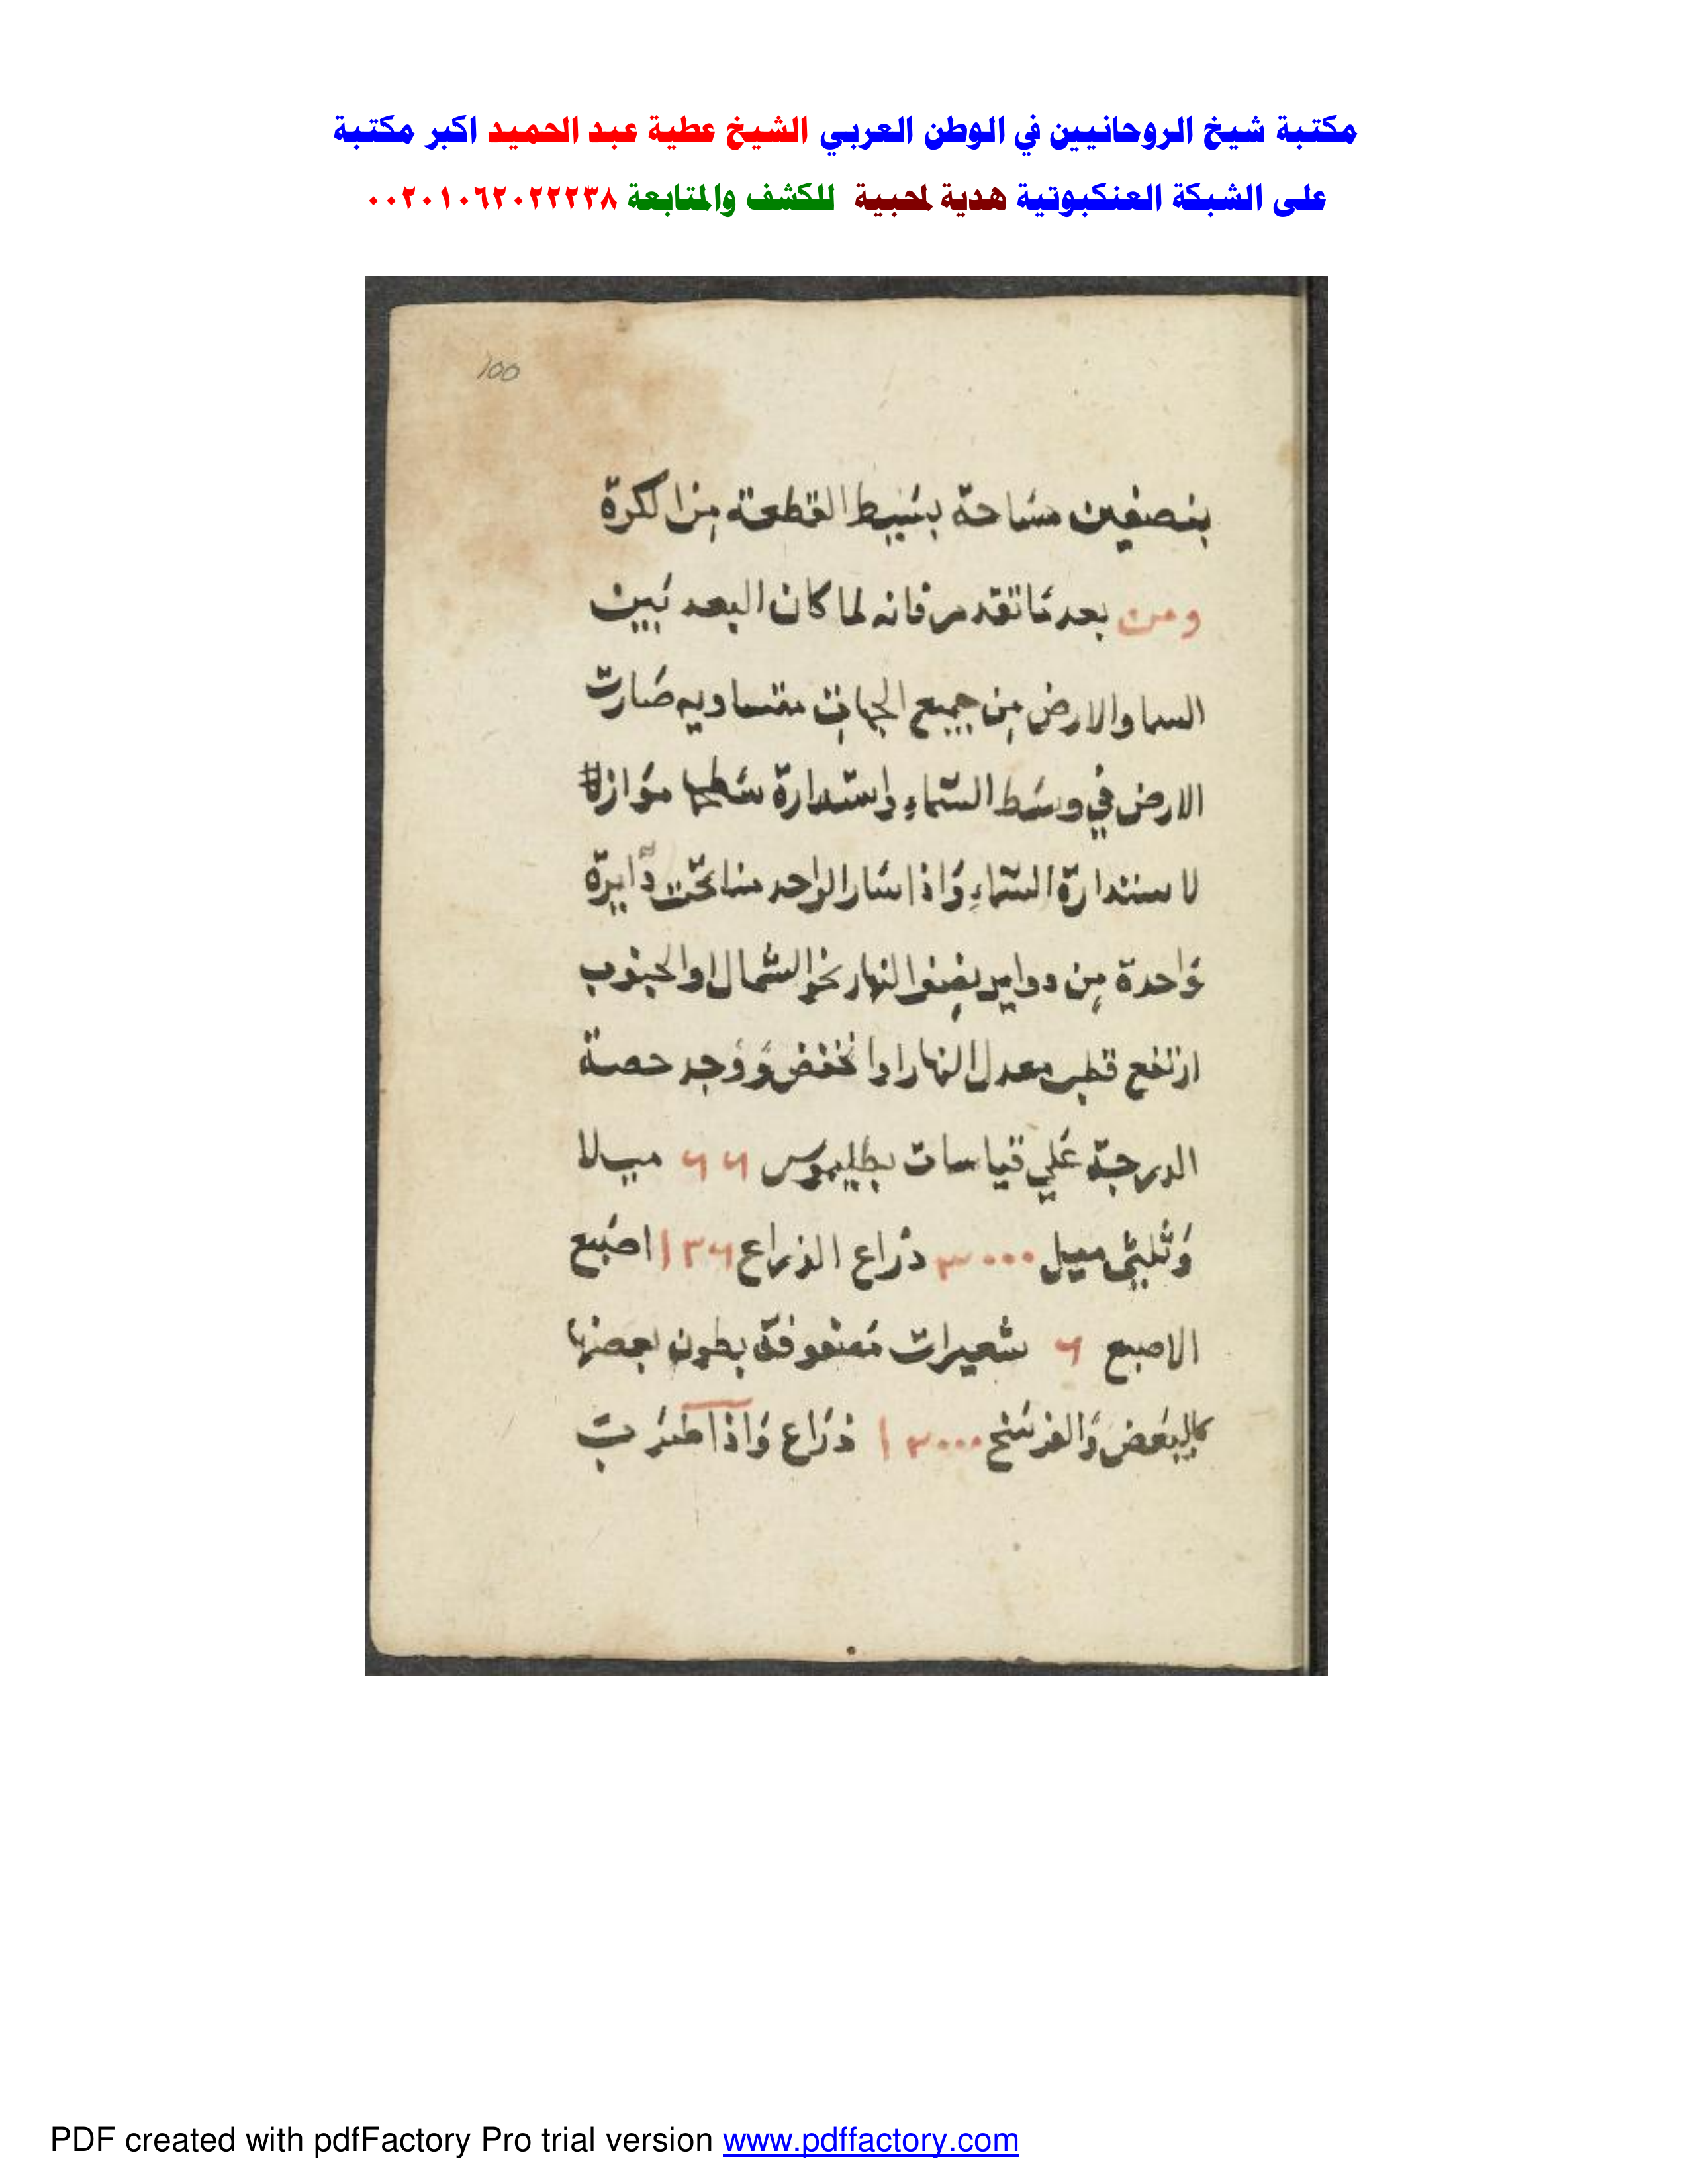 مكتبة شيخ الروحانيين في الوطن العربي الشيخ عطية عبد الحميد اكبر مكتبة
على الشبكة العنكبوتية هدية لمحبية للكشف والمتابعة ٠٠٢٠١٠٦٢٠٢٢٢٣٨
100
بنصفين مسَاحة بسَيط القطعة مِن الكرة
ومن بعد مَا تقدم فانه لما كان البعد بَين
السما والارض مِن جميع الجهات متساويه صَارت
الارض في وسَط السّماءِ واستدارة سَطحها موَازاة
لاستدارة السّماءِ وَاذا سَار الواحد منا تحت دَايرة
وَاحدة مِن دواير نِصف النهار نحو الشمال او الجنوب
ارتفع قطب معدل النهار او انخفض وَوَجد حصة
الدرجة عَلي قياسات بطليموس ٦٦ ميلا
وَثلثي ميل ٣٠٠٠ ذرَاع الذراع ١٣٦ اصَبع
الاصبع ٦ شعيرات مَصفوفة بطون بعضها
بالبَعض وَالفرسَخ ١٣٠٠٠ ذرَاع وَاذا ضرَبت
PDF created with pdfFactory Pro trial version www.pdffactory.com